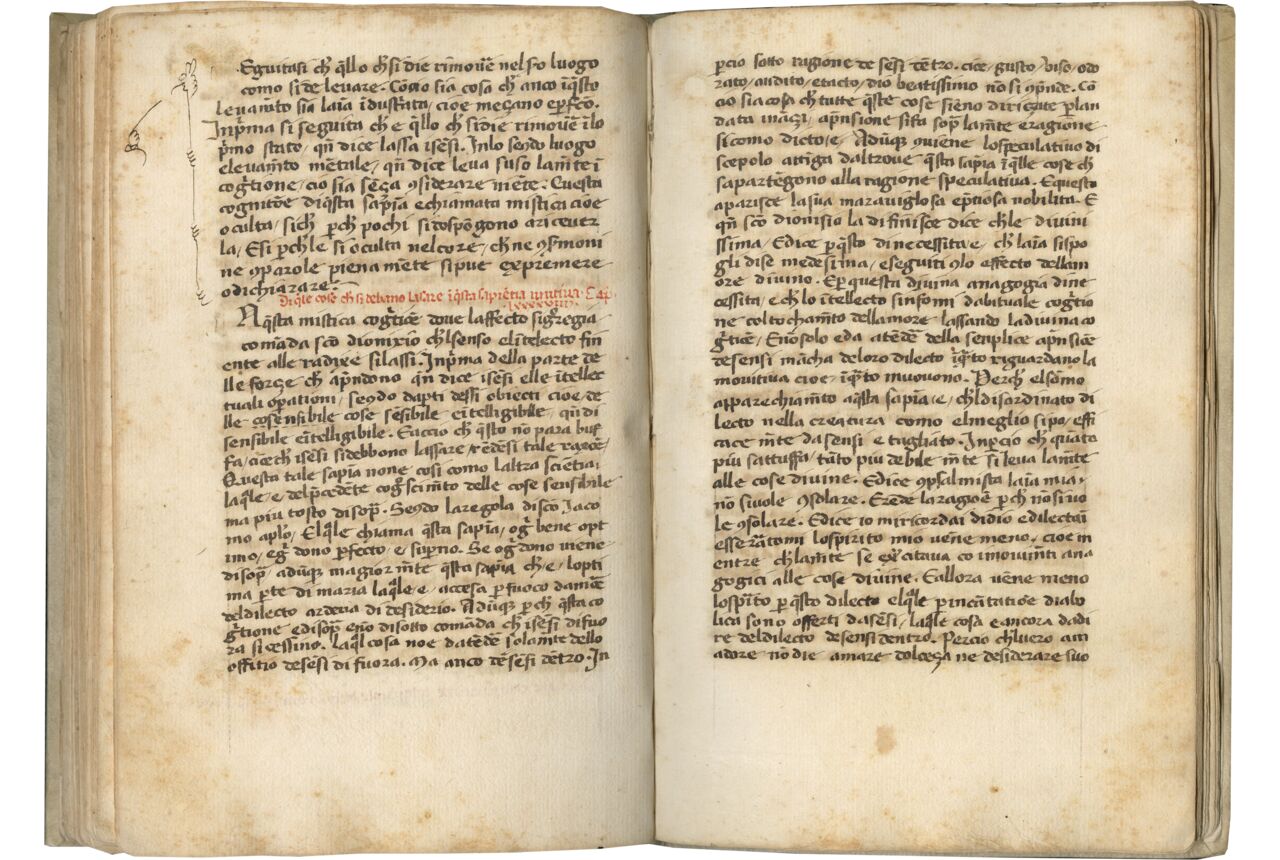 Eguitasi ch̄ q̄llo ch̄ si die rimoue᷑ nel so luogo
como si de leuare. Como sia cosa ch̄ anco ī q̄sto
leuam̄to sia laīa īdustrata, cioe meçano ꝑfc̄o.
Inp̄ma si seguita che e q̄llo ch̄ si die rimoue᷑ īlo
p̄mo stato, qn̄ dice lassa isēsi. Inlo sc̄do luogo
eleuam̄to mētale, qn̄ dice leua suso lam̄te ī
coḡtione, cio sia sēça ꝯsiderare niēte. Questa
cognitōe di q̄sta sapīa e chiamata mistica cioe
oculta, sich̄ ꝑch̄ pochi si dospōgono a riceuer
la, Esi ꝑch̄ le si oculta nel core, ch̄ ne ꝯ sermoni
ne ꝯ parole piena mēte si puo expremere
o dichiarare.
Di q̄le cose ch̄ si debano lasare ī q̄sta sapientia unitiua. Cap.
A q̄sta mistica coḡtiōe doue laffecto siḡoregia
comāda sc̄o dionixio ch̄l senso el ītelecto fin
ente alle radixe si lassi. Inp̄ma della parte de
lle forze ch̄ ap̄ndono qn̄ dice isēsi elle ītellec
tuali oꝑationi, sc̄do dapti dessi obiecti cioe de
lle cose sensibile cose sēsibile e ītelligibile, qn̄ di
sensibile e ītelligibile. Faccio ch̄ q̄sto nō para buf
fa, cioe ch̄ isēsi si debbono lassare, rēdesi tale ragōe.
Questa tale sapīa none cosi como laltra sciētia,
laq̄le e del p̄cedēte coḡscim̄to delle cose sensibile
ma piu tosto disoꝑ. Sc̄do la regola di sc̄o Jaco
mo aplo, El q̄le chiama q̄sta sapīa, oḡ bene opt
imo, eḡ dono ꝑfecto, e suꝑno. Se oḡ dono uiene
disoꝑ, adūq̄ magior m̄te q̄sta sapīa ch̄ e, lopti
ma ꝑte di maria laq̄le e, accesa ꝑ fuoco damōe
del dilecto ardeua di desiderio. Adūq̄ ꝑch̄ q̄sta co
ḡtione e disoꝑ e nō disotto comāda ch̄ isēsi di fuo
ra si cessino. Laq̄l cosa no e da tedē solam̄te dello
offitio desēsi di fuora. Ma anco de sēsi dētro. In
ꝑcio sotto ragione de sēsi dētro. cioe, gusto, uiso, odo
rato, audito, e tacto, dio beatissimo nō si ꝯp̄nde. Cō
cio sia cosa ch̄ tutte q̄ste cose siēno diriçate ꝑ lan
data inaçi, ap̄nsione sifa soꝑ lam̄te e ragione
sicomo dicto e, Adūq̄ ꝯuiene lo speculatiuo di
scepolo attīga daltroue q̄sta sapīa ī q̄lle cose ch̄
sapartēgono alla ragione speculatiua. E questo
aparisce la sua marauiglosa e p̄tiosa nobilita. E
qn̄ sc̄o dionisio la difinisce dice ch̄ le diuini
ssima, Edice ꝑ q̄sto di necessita e, ch̄ laīa si spo
gli di se medesima, e seguiti ꝯ lo effecto dellam
ore diuino. E ꝑ questa diuina anagogia di ne
cessita, e ch̄ lo ītellecto sinfomi dabituale coḡtio
ne col tocham̄to dellamore lassando la diuina co
ḡtiōe, E nō solo eda atēdē della senplice ap̄nsiōe
de sensi mācha deloro dilecto īq̄to riguardano la
motiuitiua cioe, īq̄to muouono. Perch̄ el sōmo
apparechiam̄to a q̄lla sapīa, e, ch̄l disordinato di
lecto nella creatura como el meglio si po, effi
cace m̄te da sensi e tagliato. Inpcio ch̄ quāto
piu sattuffa, tāto piu debile m̄te si leua lam̄te
alle cose diuine. Edice ꝯpsalmista laīa mia,
nō si uole ꝯsolare. E rēde la ragiōe ꝑch̄ nō si uo
le ꝯsolare. Edice io mi ricordai di dio e dilectai
esserātomi lo spirito mio uene meno, cioe in
entre ch̄ lam̄te se excitaua co i mouim̄ti ana
gogici alle cose diuine. E allora uēne meno
lo spīto ꝑ q̄sto dilecto el q̄le ꝑ īncātatiōe diabo
lica sono offerti da sēsi, laq̄le cosa e ancora da di
re del dilecto de sensi dentro. Percio ch̄ luero am
adore nō die amare dolceça ne desiderare suo